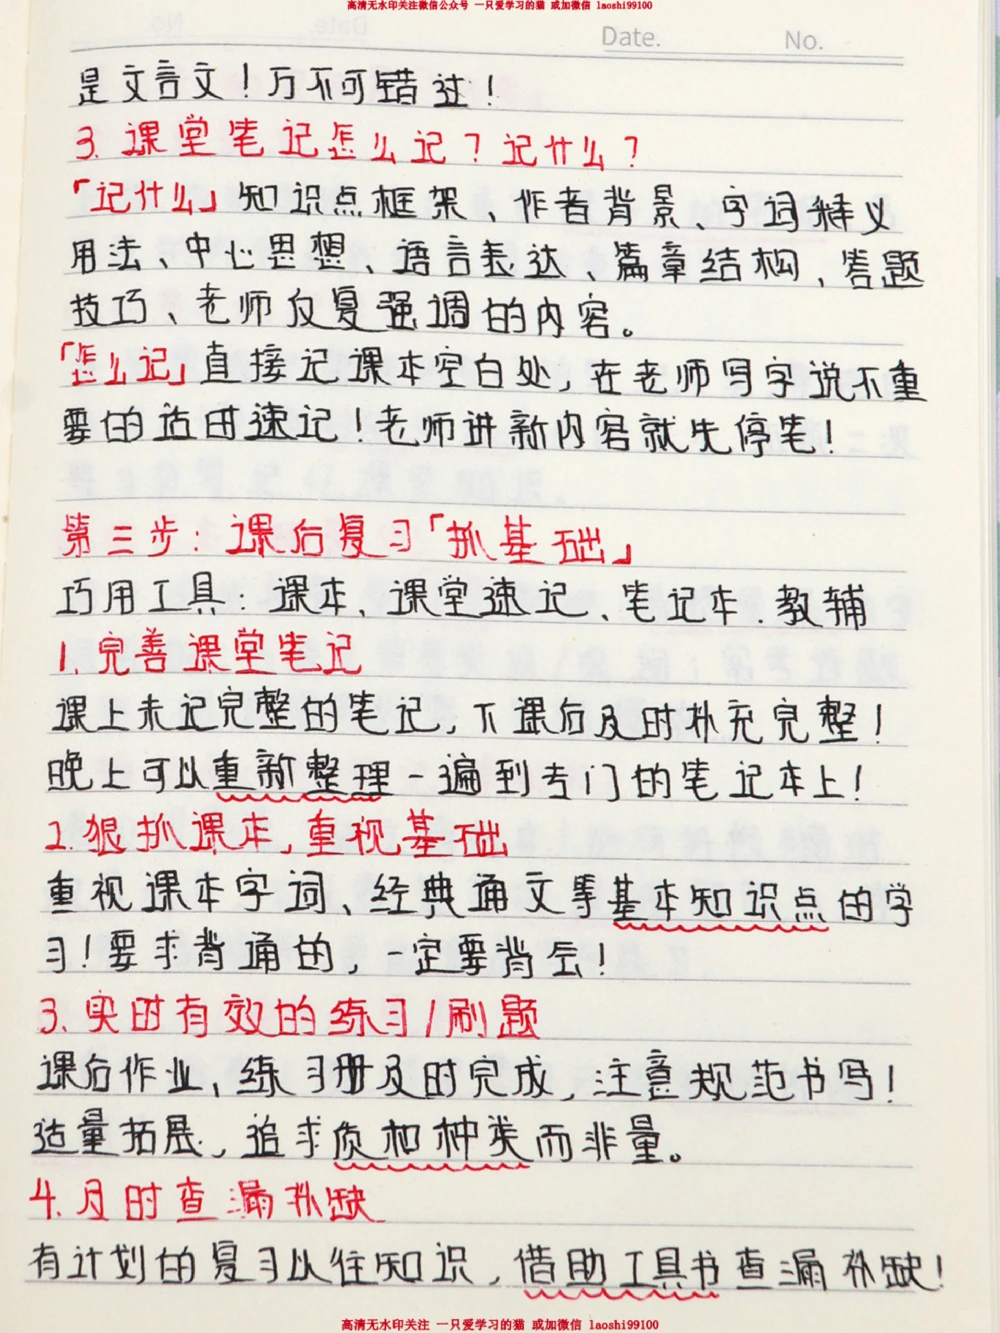 高清无水印关注微信公众号 一只爱学习的猫 或加微信 laoshi99100
Date. No.
是文言文！万不可错过！
3.课堂笔记怎么记？记什么？
「记什么」知识点框架、作者背景、字词释义
用法、中心思想、语言表达、篇章结构，答题
技巧、老师反复强调的内容。
「怎么记」直接记课本空白处，在老师写字说不重
要的话时速记！老师讲新内容就先停笔！
第三步：课后复习「抓基础」
巧用工具：课本、课堂速记、笔记本.教辅
1.完善课堂笔记
课上未记完整的笔记，下课后及时补充完整！
晚上可以重新整理一遍到专门的笔记本上！
2.狠抓课本，重视基础
重视课本字词、经典诵文等基本知识点的学
习！要求背诵的，一定要背会！
3.实时有效的练习/刷题
课后作业、练习册及时完成，注意规范书写！
适量拓展，追求质和种类而非量。
4.及时查漏补缺
有计划的复习以往知识，借助工具书查漏补缺！
高清无水印关注 一只爱学习的猫 或加微信 laoshi99100